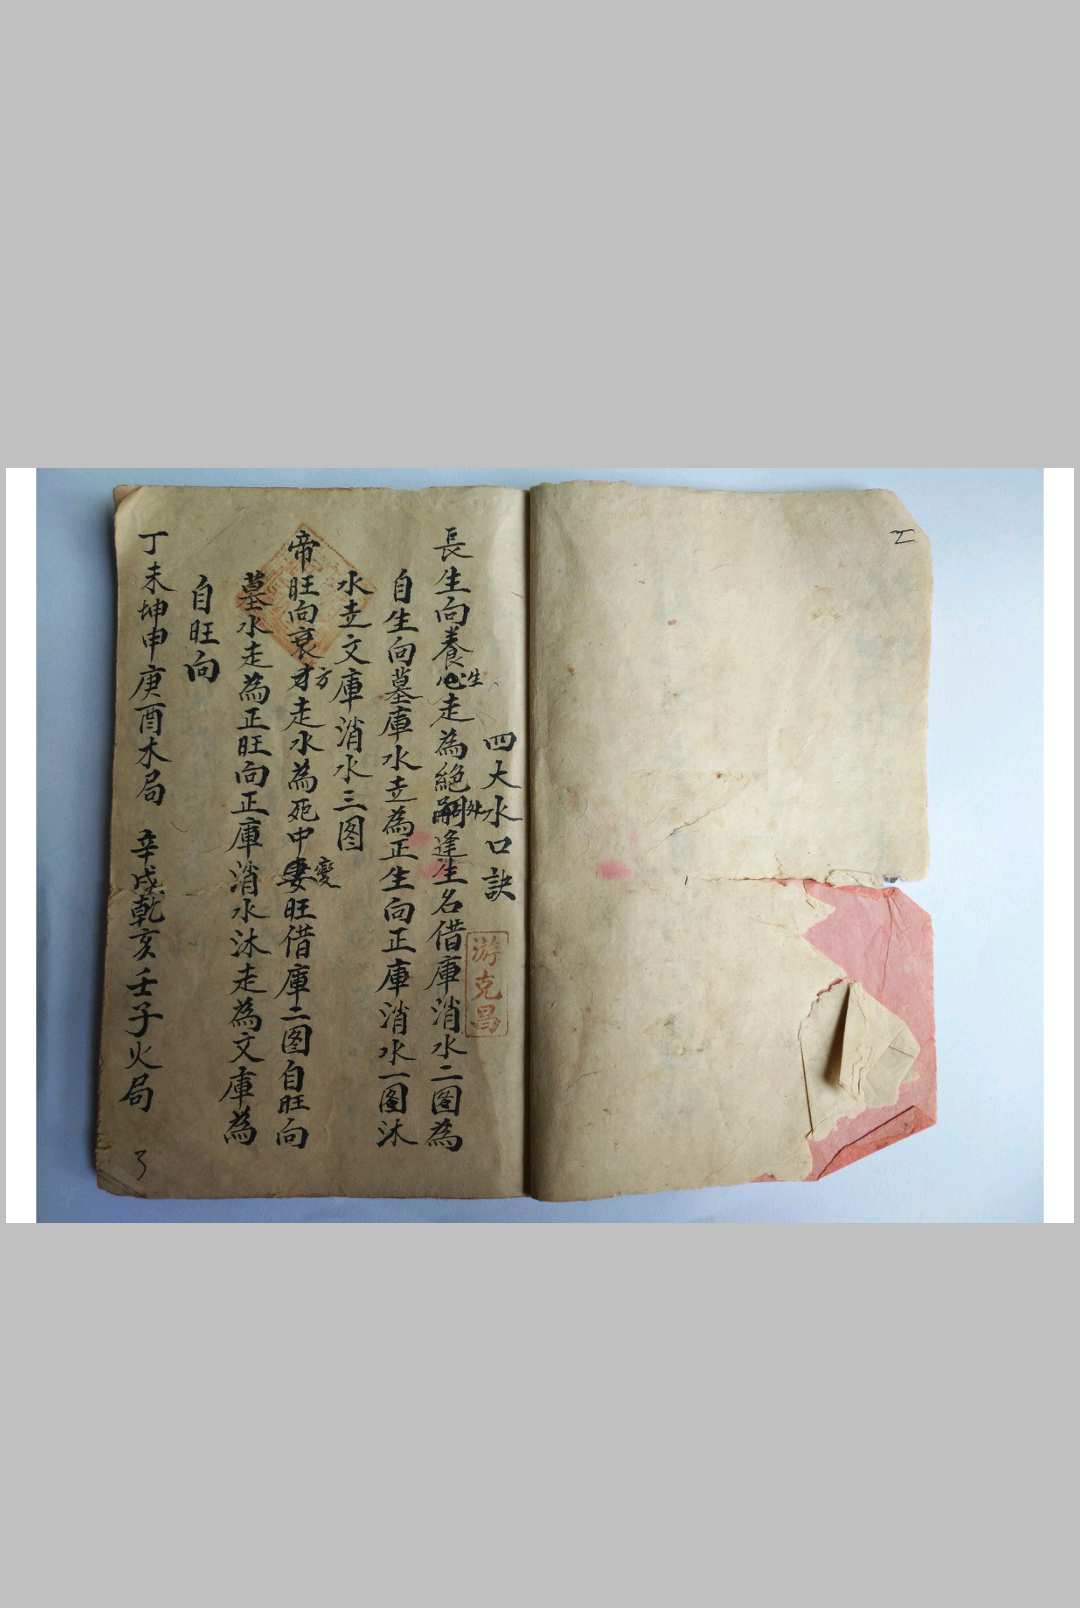 四大水口訣
游克昌
長生向養生走為絕處逢生名借庫消水二图為
自生向墓庫水走為正生向正庫消水一图沐
水走文庫消水三图
帝旺向衰方走水為死中變旺借庫二图自旺向
墓水走為正旺向正庫消水沐走為文庫為
自旺向
丁未坤申庚酉木局 辛戌乾亥壬子火局